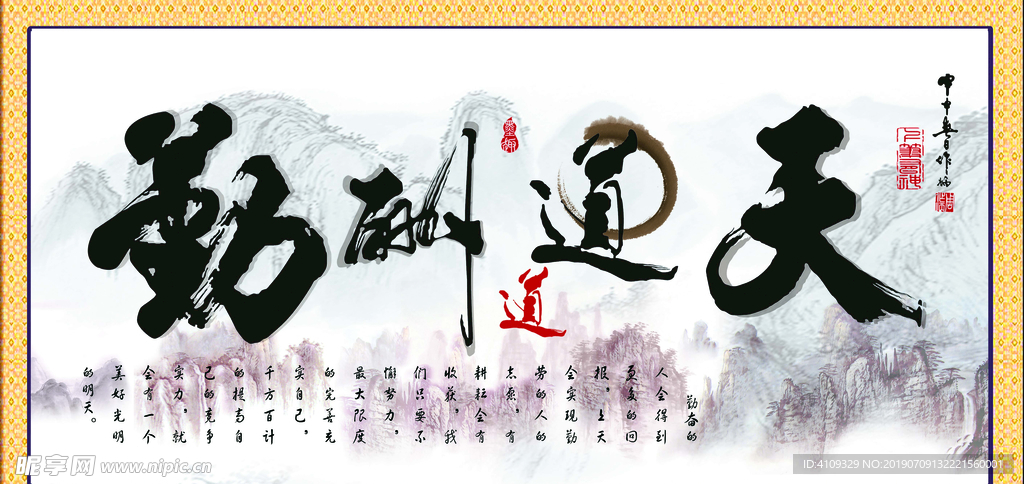 天道酬勤
道
勤奋的
人会得到
更多的回
报，上天
会实现勤
劳的人的
志愿，有
耕耘会有
收获，我
们只要不
懈努力，
最大限度
的完善充
实自己，
千方百计
的提高自
己的竞争
实力，就
会有一个
美好光明
的明天。
昵享网 www.nipic.cn
ID:4109329 NO:20190709132221560001